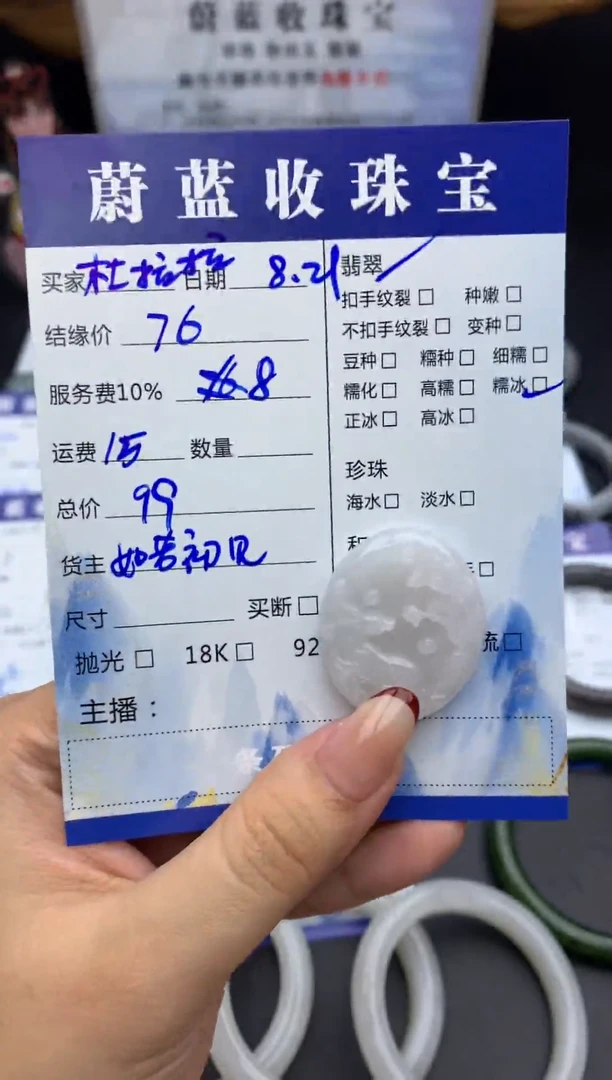 蔚蓝收珠宝
蔚蓝收珠宝
买家 杜拉拉 日期 8.21
结缘价 76
服务费10% 8
运费 15 数量
总价 99
货主 如若初见
尺寸 买断
抛光 18K 92
主播：
翡翠
扣手纹裂 种嫩
不扣手纹裂 变种
豆种 糯种 细糯
糯化 高糯 糯冰
正冰 高冰
珍珠
海水 淡水
流